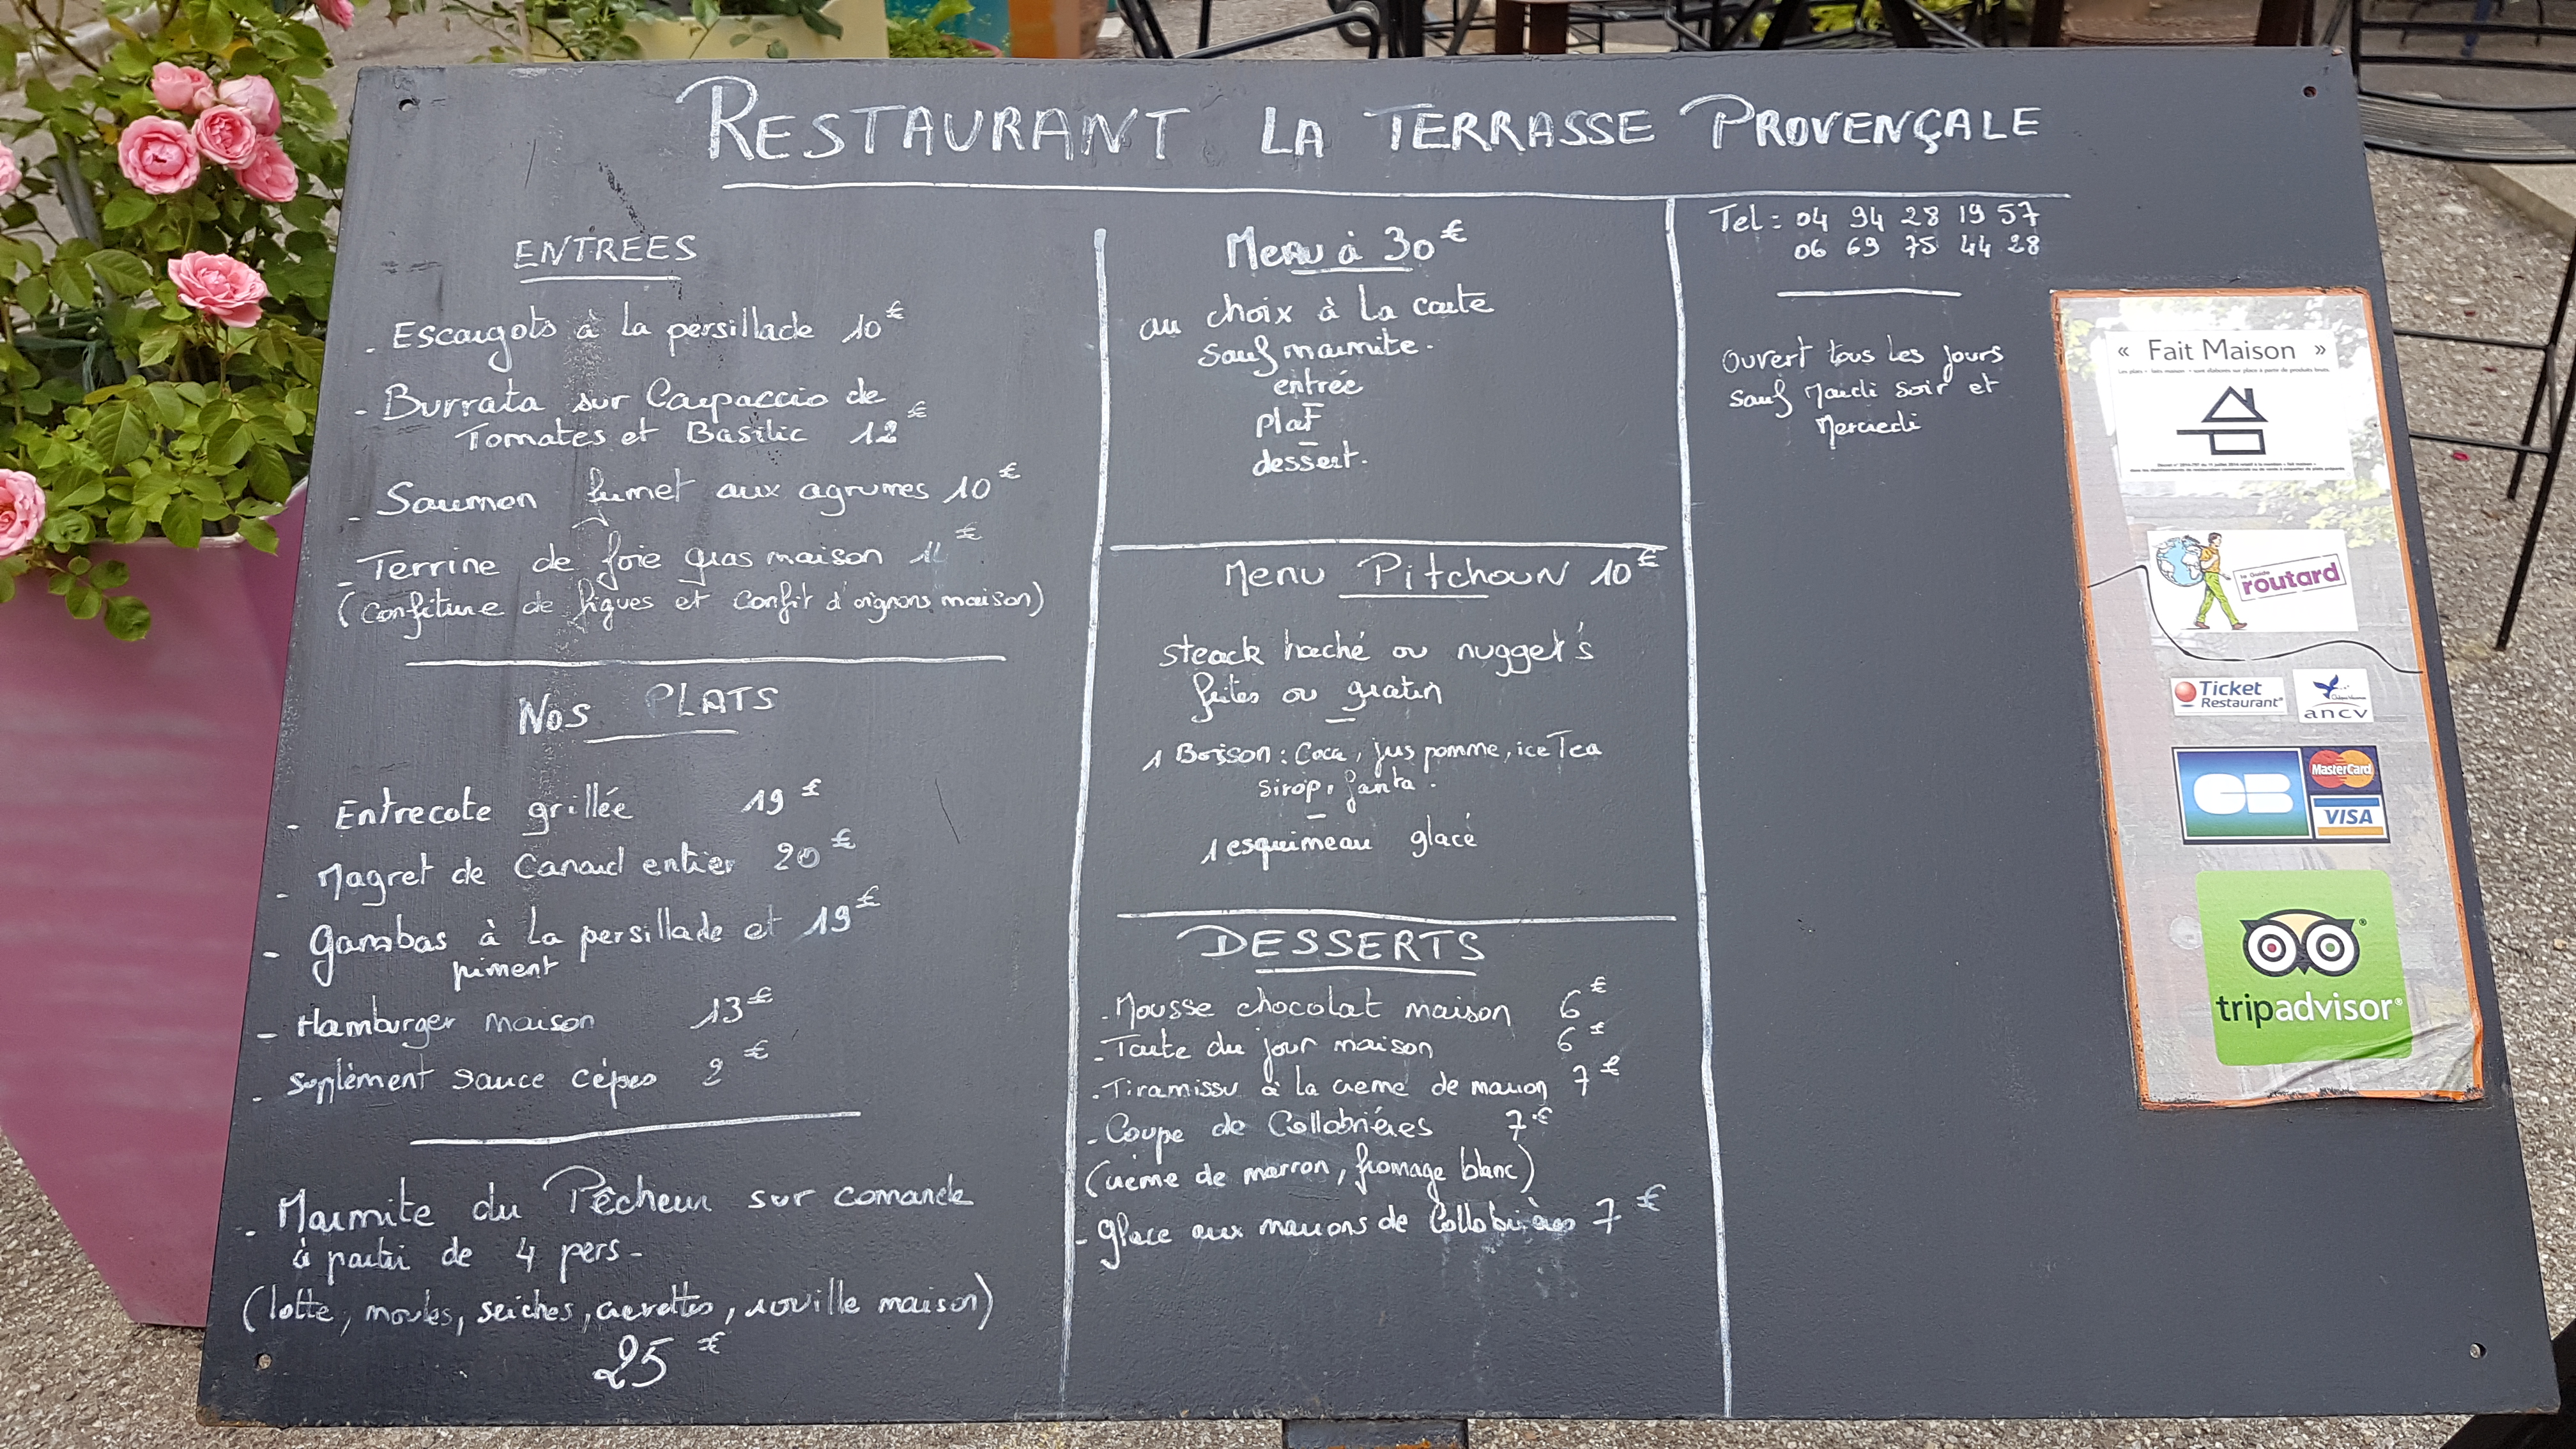 RESTAURANT LA TERRASSE PROVENÇALE
ENTREES
- Escargots à la persillade 10€
- Burrata sur Carpaccio de
Tomates et Basilic 12€
- Saumon fumet aux agrumes 10€
- Terrine de foie gras maison €
(confiture de figues et confit d'oignons maison)
NOS PLATS
- Entrecote grillée 19€
- Magret de Canard entier 20€
- Gambas à la persillade et 19€
piment
- Hamburger maison 13€
- Suplément sauce cépes 2€
- Marmite du Pêcheur sur comande
à partir de 4 pers-
(lotte, moules, seiches, crevettes, rouille maison)
25€
Menu à 30€
au choix à la carte
sauf marmite.
entrée
plat
dessert.
Menu Pitchoun 10€
steack haché ou nugget's
frites ou gratin
1 Boisson : Coca, jus pomme, ice Tea
sirop, fanta.
1 esquimeau glacé
DESSERTS
- Mousse chocolat maison 6€
- Tarte du jour maison 6€
- Tiramissu à la creme de marron 7€
- Coupe de Collobriéres 7€
(crème de marron, fromage blanc)
- Glace aux marrons de Collobrières 7€
Tel : 04 94 28 19 57
06 69 75 44 28
Ouvert tous les jours
sauf Mardi soir et
Mercredi
« Fait Maison »
routard
Ticket
Restaurant®
ancv
CB
MasterCard
VISA
tripadvisor®